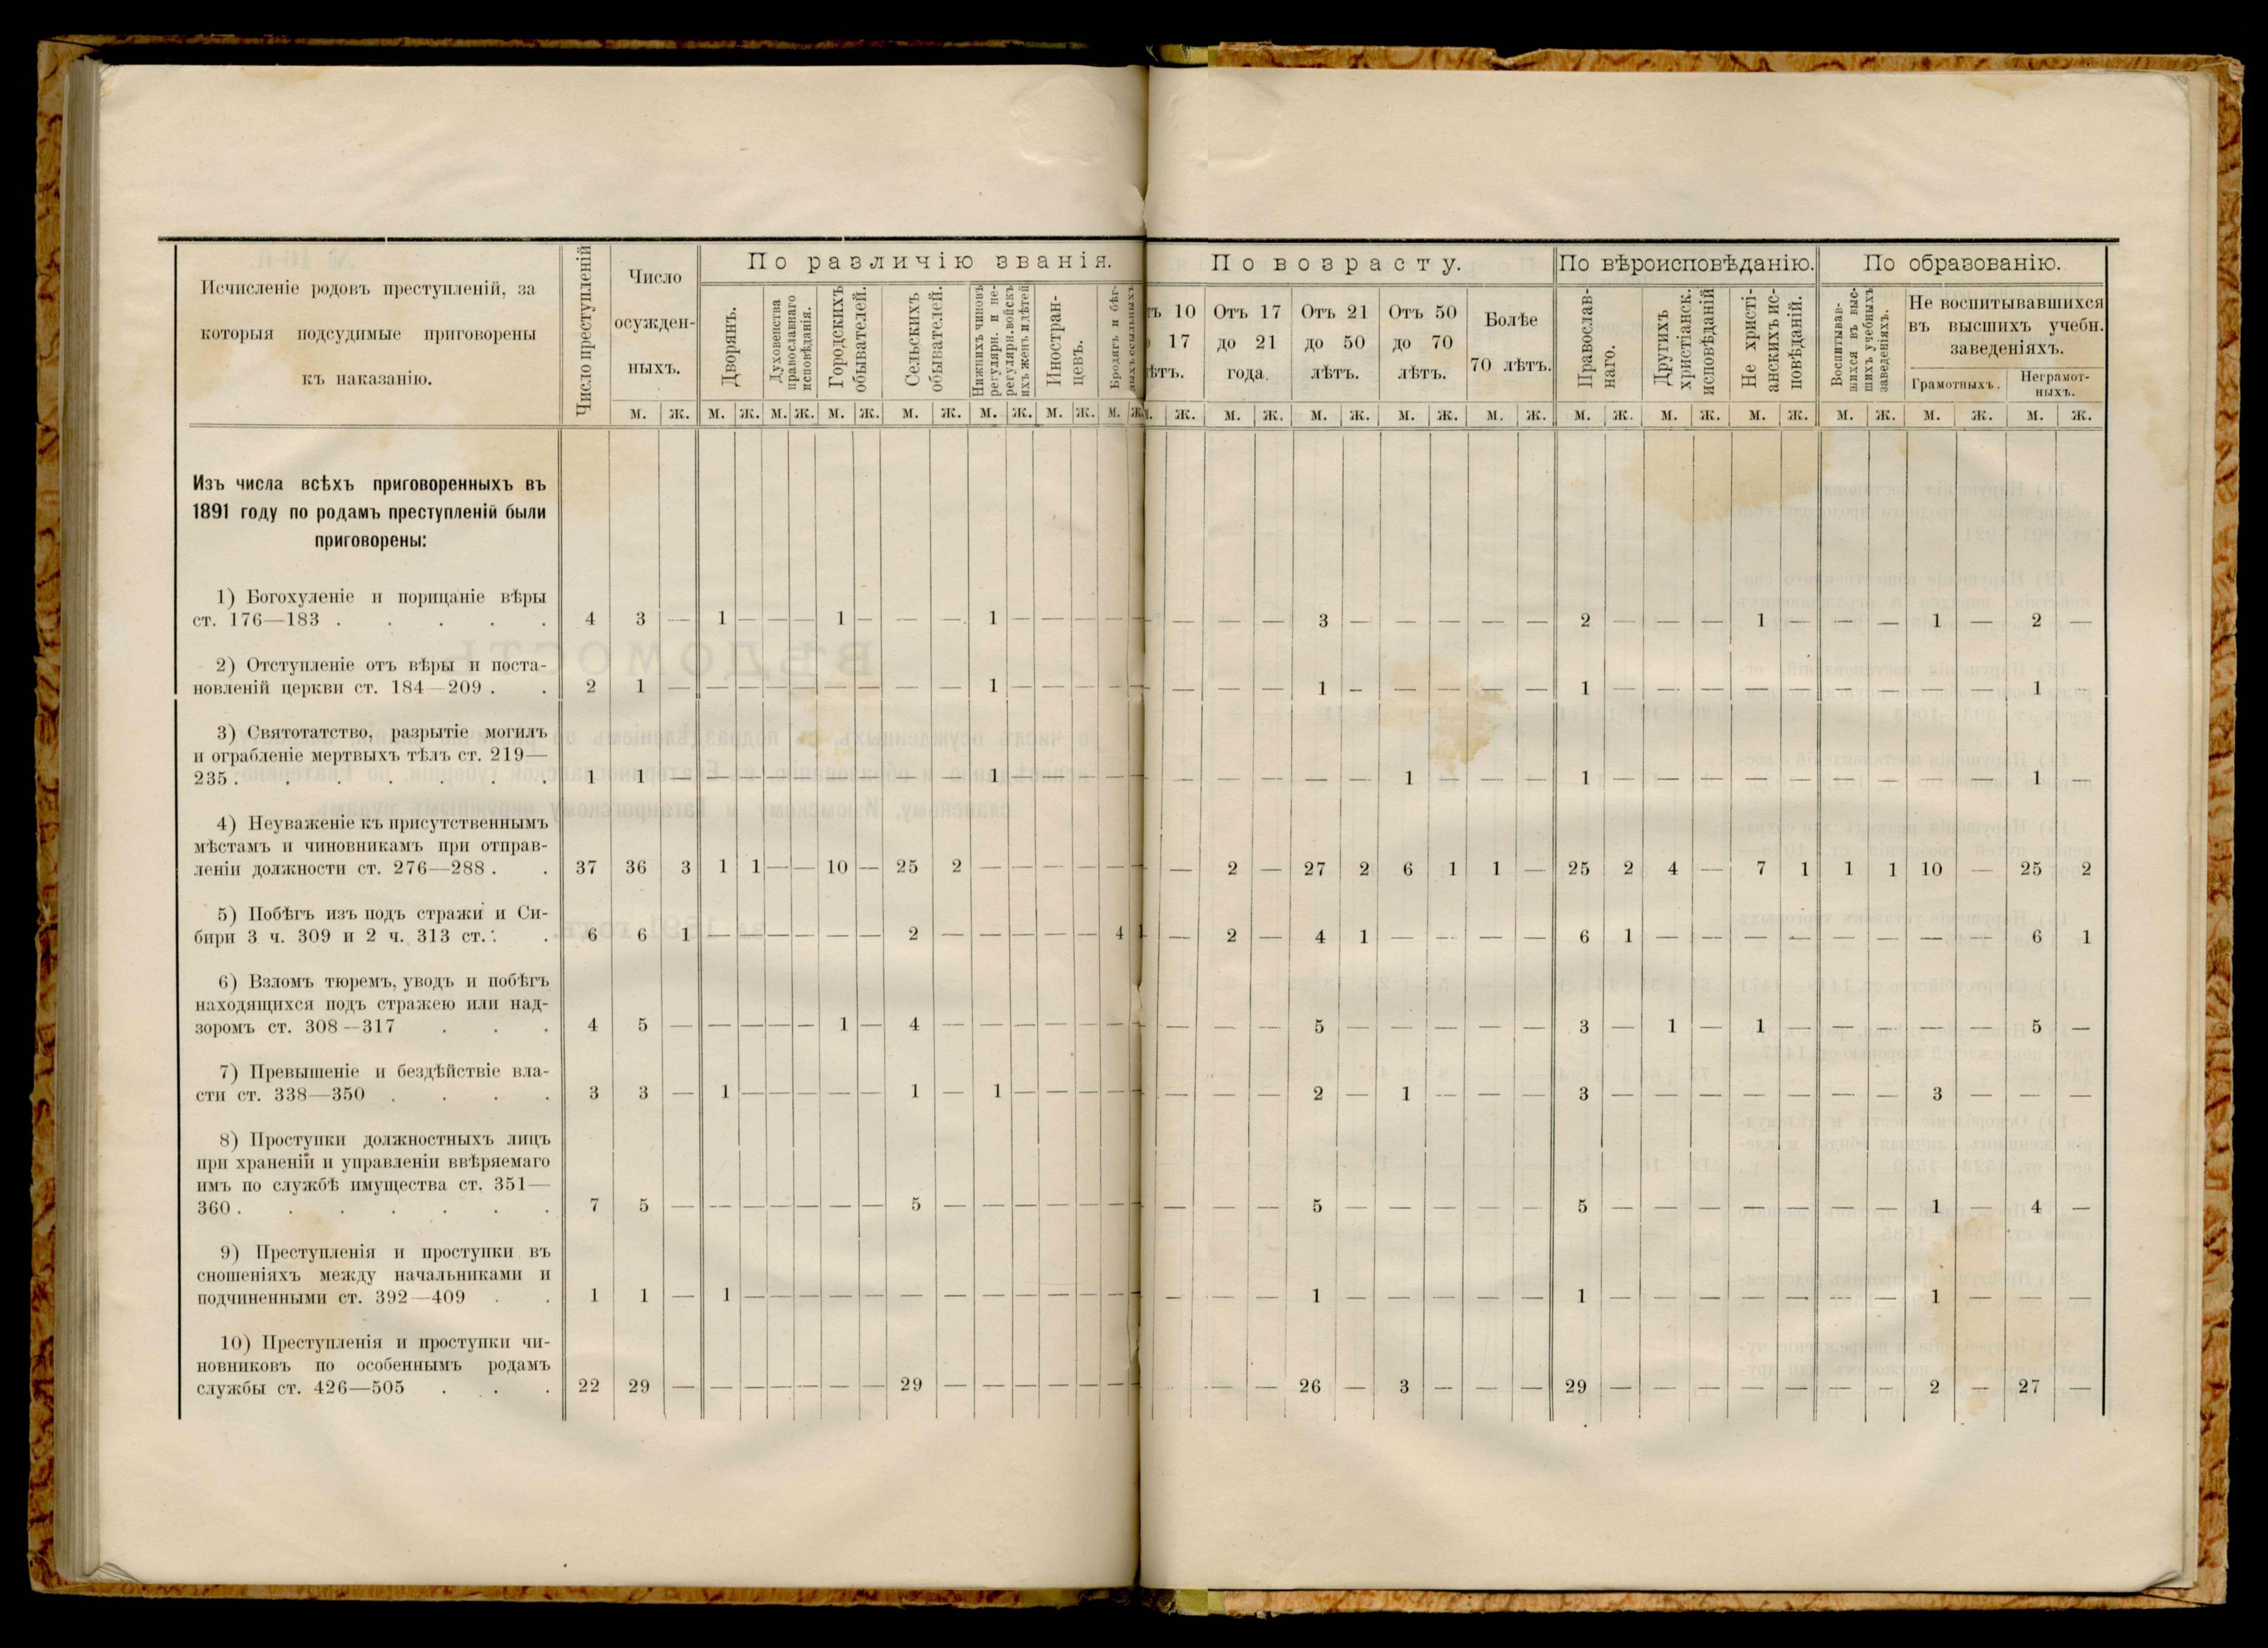 Исчисленіе родовъ преступленій, за
которыя подсудимые приговорены
къ наказанію.
Число преступленій
Число
осужден-
ныхъ.
По различію званія.
Дворянъ.
Духовенства
православнаго
исповѣданія.
Городскихъ
обывателей.
Сельскихъ
обывателей.
Нижнихъ чиновъ
регулярн. и не-
регулярн. войскъ
ихъ женъ и дѣтей
Иностран-
цевъ.
Бродягъ и бѣг-
лыхъ ссыльныхъ
По возрасту.
10
17
ѣтъ.
Отъ 17
до 21
года.
Отъ 21
до 50
лѣтъ.
Отъ 50
до 70
лѣтъ.
Болѣе
70 лѣтъ.
По вѣроисповѣданію.
Православ-
наго.
Другихъ
христіанск.
исповѣданій
Не христі-
анскихъ ис-
повѣданій.
По образованію.
Воспитывав-
шихся въ выс-
шихъ учебныхъ
заведеніяхъ.
Не воспитывавшихся
въ высшихъ учебн.
заведеніяхъ.
Грамотныхъ.
Неграмот-
ныхъ.
м. ж. м. ж. м. ж. м. ж. м. ж. м. ж. м. ж. м. ж. ж. м. ж. м. ж. м. ж. м. ж. м. ж. м. ж. м. ж. м. ж. м. ж. м. ж.
Изъ числа всѣхъ приговоренныхъ въ
1891 году по родамъ преступленій были
приговорены:
1) Богохуленіе и порицаніе вѣры
ст. 176—183 . . . . . 4 3 — 1 — — — 1 — — — 1 — — — — — — — — 3 — — — — — 2 — — — 1 — — — 1 — 2 —
2) Отступленіе отъ вѣры и поста-
новленій церкви ст. 184—209 . . 2 1 — — — — — — — — — 1 — — — — — — — — 1 — — — — — 1 — — — — — — — — — 1 —
3) Святотатство, разрытіе могилъ
и ограбленіе мертвыхъ тѣлъ ст. 219—
235 . . . . . . . 1 1 — — — — — — — — — 1 — — — — — — — — — — 1 — — — 1 — — — — — — — — — 1 —
4) Неуваженіе къ присутственнымъ
мѣстамъ и чиновникамъ при отправ-
леніи должности ст. 276—288 . . 37 36 3 1 1 — — 10 — 25 2 — — — — — — — 2 — 27 2 6 1 1 — 25 2 4 — 7 1 1 1 10 — 25 2
5) Побѣгъ изъ подъ стражи и Си-
бири 3 ч. 309 и 2 ч. 313 ст. . . 6 6 1 — — — — — — 2 — — — — — 4 1 — 2 — 4 1 — — — — 6 1 — — — — — — — — 6 1
6) Взломъ тюремъ, уводъ и побѣгъ
находящихся подъ стражею или над-
зоромъ ст. 308—317 . . . 4 5 — — — — — 1 — 4 — — — — — — — — — — 5 — — — — — 3 — 1 — 1 — — — — — 5 —
7) Превышеніе и бездѣйствіе вла-
сти ст. 338—350 . . . . 3 3 — 1 — — — — — 1 — 1 — — — — — — — — 2 — 1 — — — 3 — — — — — — — 3 — — —
8) Проступки должностныхъ лицъ
при храненіи и управленіи ввѣряемаго
имъ по службѣ имущества ст. 351—
360 . . . . . . . 7 5 — — — — — — — 5 — — — — — — — — — — 5 — — — — — 5 — — — — — — — 1 — 4 —
9) Преступленія и проступки въ
сношеніяхъ между начальниками и
подчиненными ст. 392—409 . . 1 1 — 1 — — — — — — — — — — — — — — — — 1 — — — — — 1 — — — — — — — 1 — — —
10) Преступленія и проступки чи-
новниковъ по особеннымъ родамъ
службы ст. 426—505 . . . 22 29 — — — — — — — 29 — — — — — — — — — — 26 — 3 — — — 29 — — — — — — — 2 — 27 —